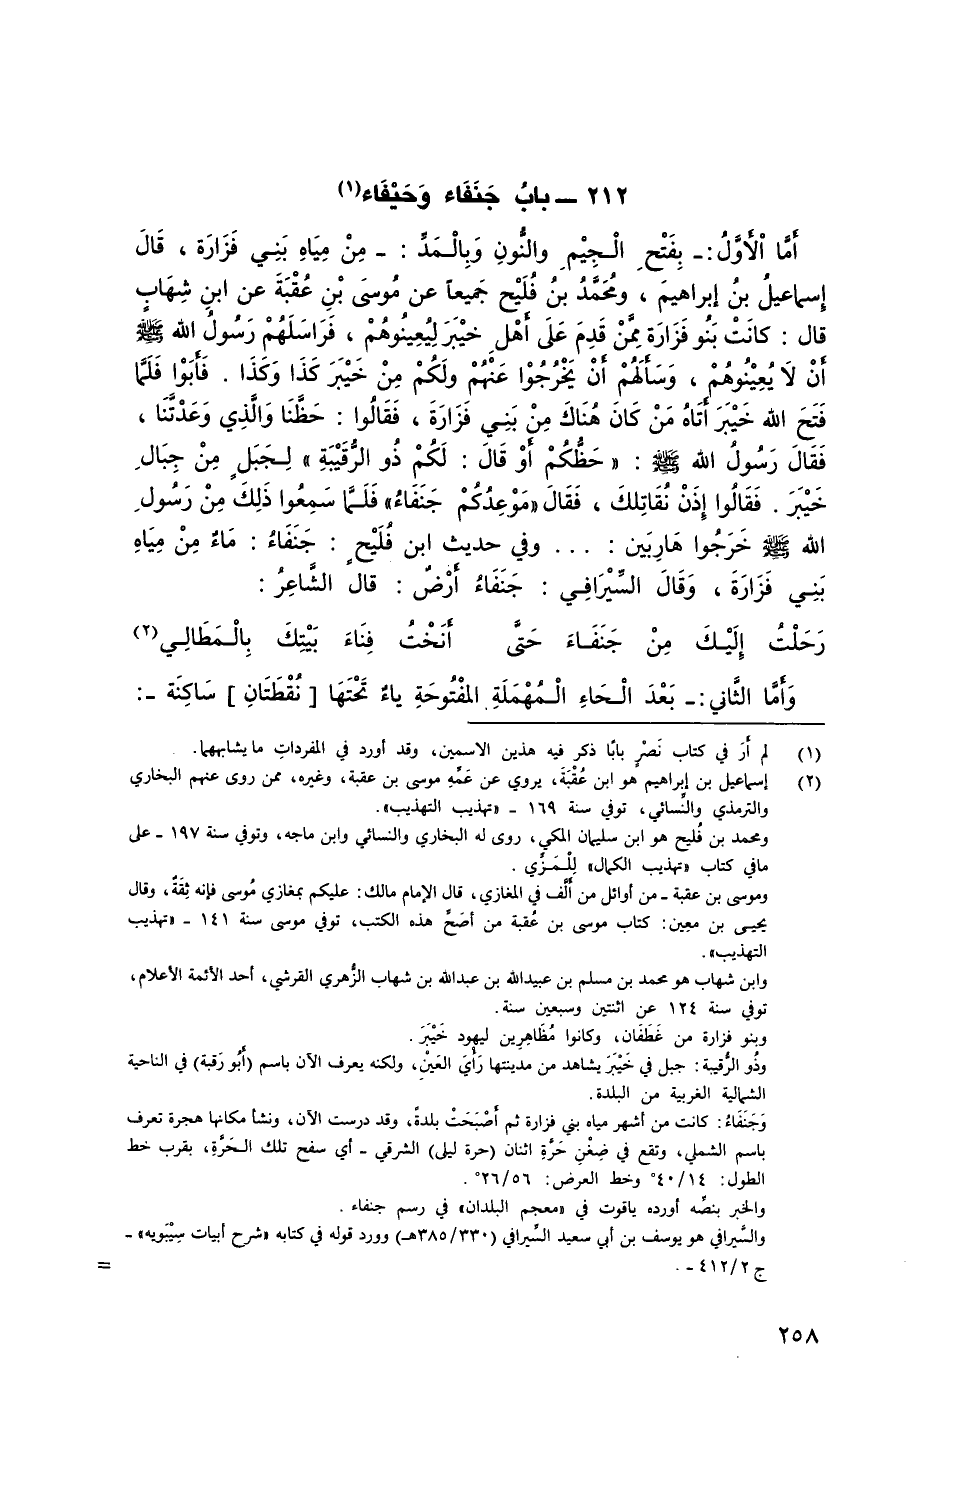 ٢١٢ ــ بابُ جَنَفَاء وَحَيْفَاء(١)
أَمَّا الْأَوَّلُ :ـ بِفَتْحِ الْجِيْمِ والنُّونِ وَبِالْمَدِّ : ـ مِنْ مِيَاهِ بَنِي فَزَارَة ، قَالَ
إِسماعيلُ بنُ إبراهيمَ ، ومُحَمَّدُ بنُ فُلَيْح جَميعاً عن مُوسَى بْنِ عُقْبَةَ عن ابنِ شِهَابٍ
قال : كانَتْ بَنُو فَزَارَة مِمَّنْ قَدِمَ عَلَى أَهْلِ خَيْبَرَ لِيُعِينُوهُمْ ، فَرَاسَلَهُمْ رَسُولُ الله ﷺ
أَنْ لَا يُعِيْنُوهُمْ ، وَسَأَلَهُمْ أَنْ يَخْرُجُوا عَنْهُمْ ولَكُمْ مِنْ خَيْبَرَ كَذَا وَكَذَا . فَأَبَوْا فَلَمَّا
فَتَحَ الله خَيْبَرَ أَتَاهُ مَنْ كَانَ هُنَاكَ مِنْ بَنِي فَزَارَةَ ، فَقَالُوا : حَظَّنَا وَالَّذِي وَعَدْتَّنَا ،
فَقَالَ رَسُولُ الله ﷺ : « حَظُّكُمْ أَوْ قَالَ : لَكُمْ ذُو الرُّقَيْبَةِ » لِجَبَلٍ مِنْ جِبَالِ
خَيْبَرَ . فَقَالُوا إِذَنْ نُقَاتِلكَ ، فَقَالَ «مَوْعِدُكُمْ جَنَفَاءُ» فَلَمَّا سَمِعُوا ذَلِكَ مِنْ رَسُولِ
الله ﷺ خَرَجُوا هَارِبَين : ... وفي حديث ابن فُلَيْحٍ : جَنَفَاءُ : مَاءٌ مِنْ مِيَاهِ
بَنِي فَزَارَةَ ، وَقَالَ السِّيْرَافِي : جَنَفَاءُ أَرْضٌ : قال الشَّاعِرُ :
رَحَلْتُ إِلَيْكَ مِنْ جَنَفَاءَ حَتَّى أَنَخْتُ فِنَاءَ بَيْتِكَ بِالْمَطَالِي(٢)
وَأَمَّا الثَّاني :ـ بَعْدَ الْحَاءِ الْمُهْمَلَةِ المْفْتُوحَةِ ياءٌ تَحْتَهَا [ نُقْطَتَانِ ] سَاكِنَة ـ:
(١) لم أَرَ في كتاب نَصْرٍ بابًا ذكر فيه هذين الاسمين، وقد أورد في المفرداتِ ما يشابههما.
(٢) إسماعيل بن إبراهيم هو ابن عُقْبَةَ، يروي عن عَمِّهِ موسى بن عقبة، وغيره، ممن روى عنهم البخاري
والترمذي والنِّسائي، توفي سنة ١٦٩ ـ «تهذيب التهذيب».
ومحمد بن فُليح هو ابن سليمان المكي، روى له البخاري والنسائي وابن ماجه، وتوفي سنة ١٩٧ ـ على
مافي كتاب «تهذيب الكمال» لِلْمَزِّي .
وموسى بن عقبة ـ من أوائل من أَلَّف في المغازي، قال الإمام مالك: عليكم بمغازي مُوسى فإنه ثِقَةٌ، وقال
يحيى بن معين: كتاب موسى بن عُقبة من أصَحِّ هذه الكتب، توفي موسى سنة ١٤١ ـ «تهذيب
التهذيب».
وابن شهاب هو محمد بن مسلم بن عبيدالله بن عبدالله بن شهاب الزُّهري القرشي، أحد الأئمة الأعلام،
توفي سنة ١٢٤ عن اثنتين وسبعين سنة.
وبنو فزارة من غَطَفَان، وكانوا مُظَاهِرين ليهود خَيْبَرَ .
وذُو الرُّقيبة: جبل في خَيْبَرَ يشاهد من مدينتها رَأْيَ العَيْنْ، ولكنه يعرف الآن باسم (أَبُو رَقبة) في الناحية
الشمالية الغربية من البلدة.
وَجَنَفَاءُ: كانت من أشهر مياه بني فزارة ثم أَصْبَحَتْ بلدةً، وقد درست الآن، ونشأ مكانها هجرة تعرف
باسم الشملي، وتقع في ضِغْنِ حَرَّةِ اثنان (حرة ليلى) الشرقي ـ أي سفح تلك الحَرَّةِ، بقرب خط
الطول: ٤٠/١٤° وخط العرض: ٢٦/٥٦° .
والخبر بنصِّه أورده ياقوت في «معجم البلدان» في رسم جنفاء .
والسِّيرافي هو يوسف بن أبي سعيد السِّيرافي (٣٨٥/٣٣٠هـ) وورد قوله في كتابه «شرح أبيات سِيْبَويه» ـ
ج ٤١٢/٢ ـ .
=
٢٥٨